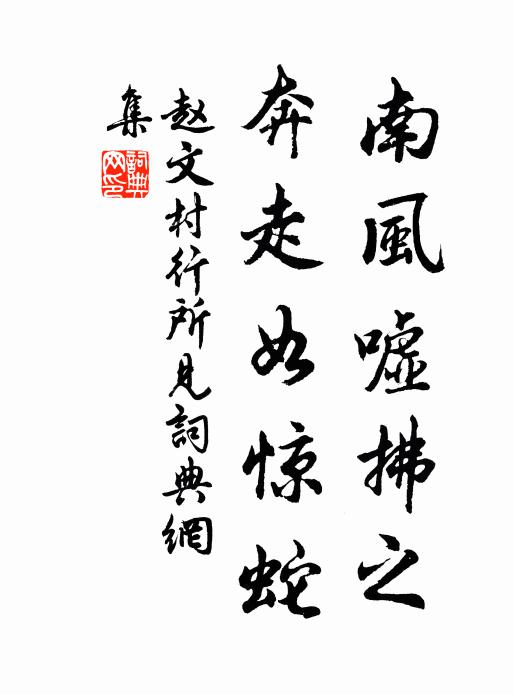 南風嘘拂之
奔走如惊蛇
赵文村行所見詞典網
集
詞典网印